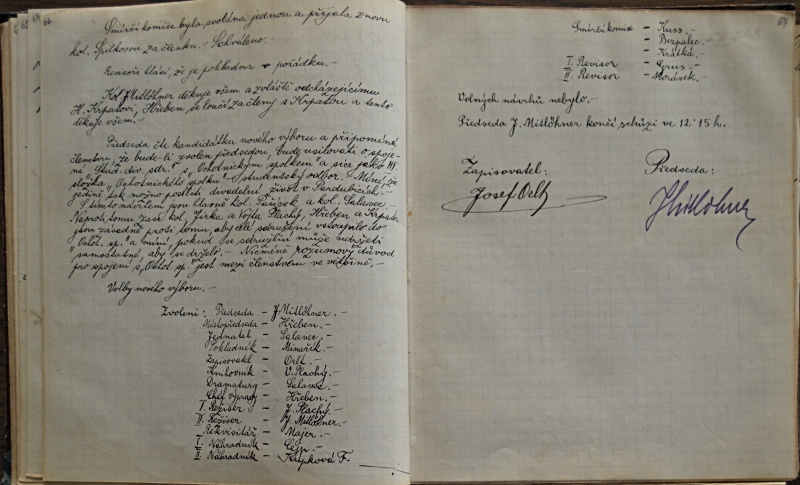 66
Smírčí komise byla svolána jednou a přijala znovu
kol. Spilkovou za členku. - Schváleno. -
Revisoři hlásí, že je pokladna v pořádku. -
Kol. J. Mitlöhner děkuje všem a zvláště odcházejícímu
H. Krpatovi; Hřeben se loučí za členy s Krpatou a tento
děkuje všem.
Předseda čte kandidátku nového výboru a připomíná
členstvu, že bude-li zvolen předsedou, bude usilovati o spoje-
ní "Stud. div. sdr." s "Ochotnickým spolkem" a sice jako
složka "Ochotnického spolku" - Studentský odbor. - Míní, že
jedině tak možno postříti divadelní život v Pardubicích. -
S tímto návrhem jsou hlavně kol. Pařízek a kol. Salavec. -
Naproti tomu zase kol. Jirka a Vojta Plachý, Hřeben a Krpata
jsou zásadně proti tomu, aby celé sdružení vstoupilo do
"Ochot. sp." a míní, pokud se sdružení může udržeti
samostatně, aby se drželo. - Nicméně rozumový důvod
pro spojení s "Ochot. sp." jest mezi členstvem ve většině. -
Volby nového výboru. -
Zvoleni: Předseda - J. Mitlöhner. -
Místopředseda - Hřeben. -
Jednatel - Salavec. -
Pokladník - Minařík. -
Zapisovatel - Orlt. -
Knihovník - V. Plachý. -
Dramaturg - Salavec. -
Chéf výpravy - Hřeben. -
I. Režiser - J. Plachý. -
II. Režiser - J. Mitlöhner. -
Rekvisitář - Majer. -
I. Náhradník - Lejn. -
II. Náhradník - Krupková F. -
67
Smírčí komise - Kuss. -
- Bezpalec. -
- Krátká. -
I. Revisor - Grus. -
II. Revisor - Morávek. -
Volných návrhů nebylo. -
Předseda J. Mitlöhner končí schůzi ve 12·15 h.
Zapisovatel: Předseda:
Josef Orlt JMitlöhner